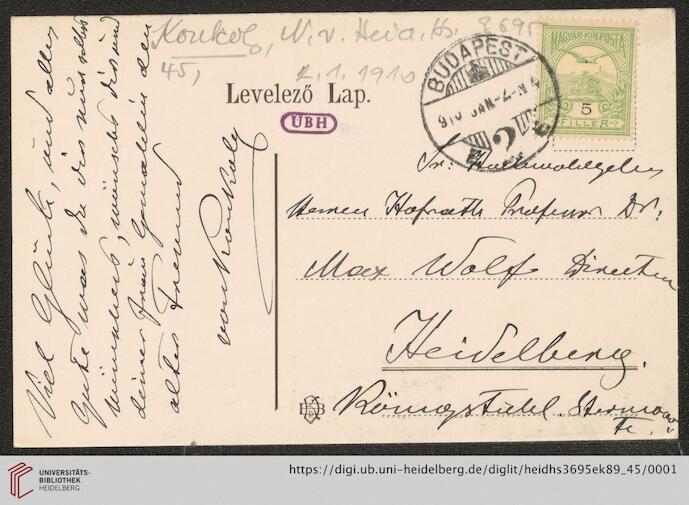 Konkoly, N. v. Heid. Hs. 3695
45,
2.1.1910
Levelező Lap.
UBH
BUDAPEST
910 JAN -2 -N 4
MAGYAR KIR. POSTA
5
FILLER
Viel Glück, und alles
Gute was Du dir nur selbst
wünschest, wünscht dir und
deiner Frau Gemahlin dein
alter Freund
von Konkoly
Sr: Hochwohlgeboren
Herren Hofrath Professor Dr:
Max Wolf Director
Heidelberg.
Königstuhl. Sternwarte.
UNIVERSITÄTS-
BIBLIOTHEK
HEIDELBERG
https://digi.ub.uni-heidelberg.de/diglit/heidhs3695ek89_45/0001